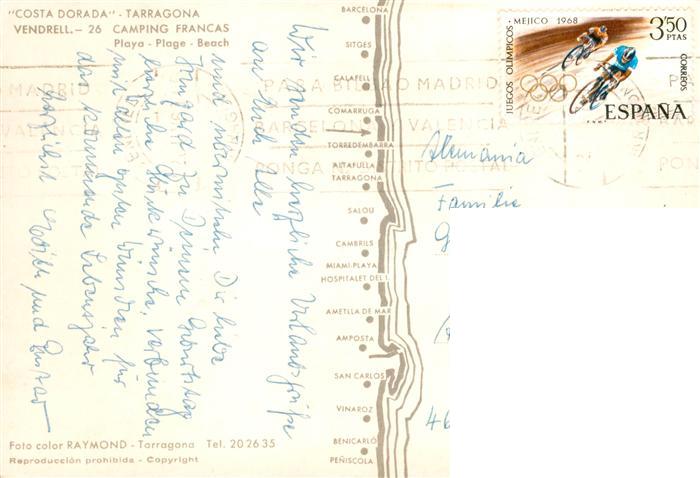 "COSTA DORADA" - TARRAGONA
VENDRELL.- 26 CAMPING FRANCAS
Playa - Plage - Beach
Wir senden herzliche Urlaubsgrüße
an Euch alle
und übermitteln Dir liebe
Irmgard zu Deinem Geburtstag
herzliche Glückwünsche, verbunden
mit allen guten Wünschen für
das kommende Lebensjahr
und Gustav
BARCELONA
SITGES
CALAFELL
COMARRUGA
TORREDEMBARRA
ALTAFULLA
TARRAGONA
SALOU
CAMBRILS
MIAMI-PLAYA
HOSPITALET DEL I.
AMETLLA DE MAR
AMPOSTA
SAN CARLOS
VINAROZ
BENICARLÓ
PEÑISCOLA
JUEGOS OLIMPICOS · MEJICO 1968
3'50
PTAS
CORREOS
ESPAÑA
MADRID
PARA BILBAO MADRID
VALENCIA
BARCELONA VALENCIA
PONGA
DISTRITO POSTAL
Alemania
Familie
G
46
Foto color RAYMOND - Tarragona Tel. 20 26 35
Reproducción prohibida - Copyright